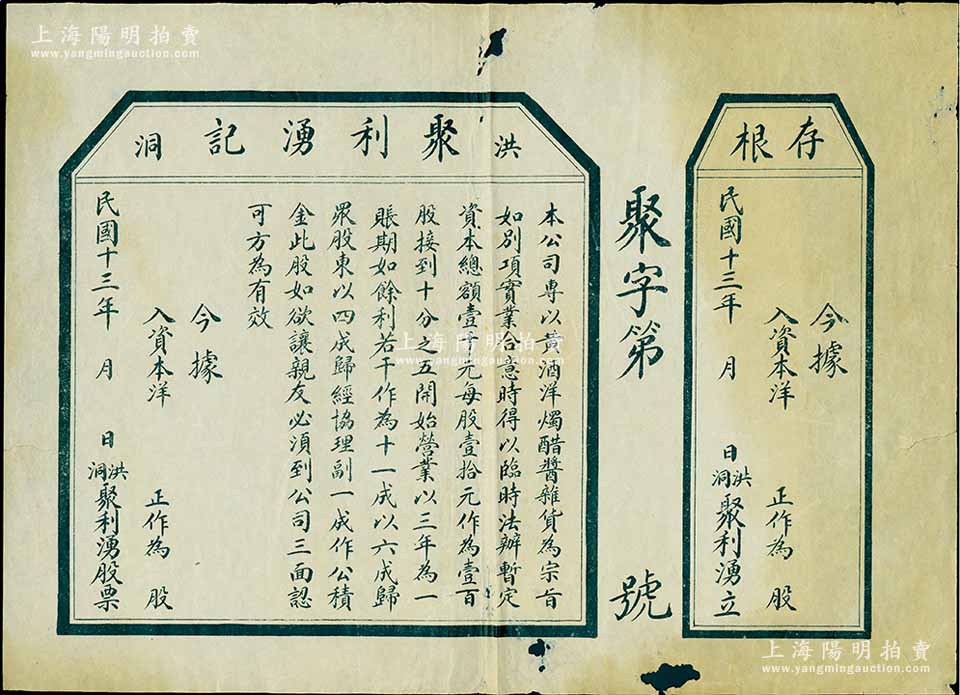 上海陽明拍賣
www.yangmingauction.com
存根
今據
入資本洋 正作為 股
民國十三年 月 日 洪洞 聚利湧立
聚字第 號
洪洞 聚利湧記
本公司專以黃酒洋燭醋醬雜貨為宗旨
如別項實業合意時得以臨時法辦暫定
資本總額壹千元每股壹拾元作為壹百
股接到十分之五開始營業以三年為一
賬期如餘利若干作為十一成以六成歸
眾股東以四成歸經協理副一成作公積
金此股如欲讓親友必須到公司三面認
可方為有效
今據
入資本洋 正作為 股
民國十三年 月 日 洪洞 聚利湧股票
上海陽明拍賣
www.yangmingauction.com
上海陽明拍賣
www.yangmingauction.com